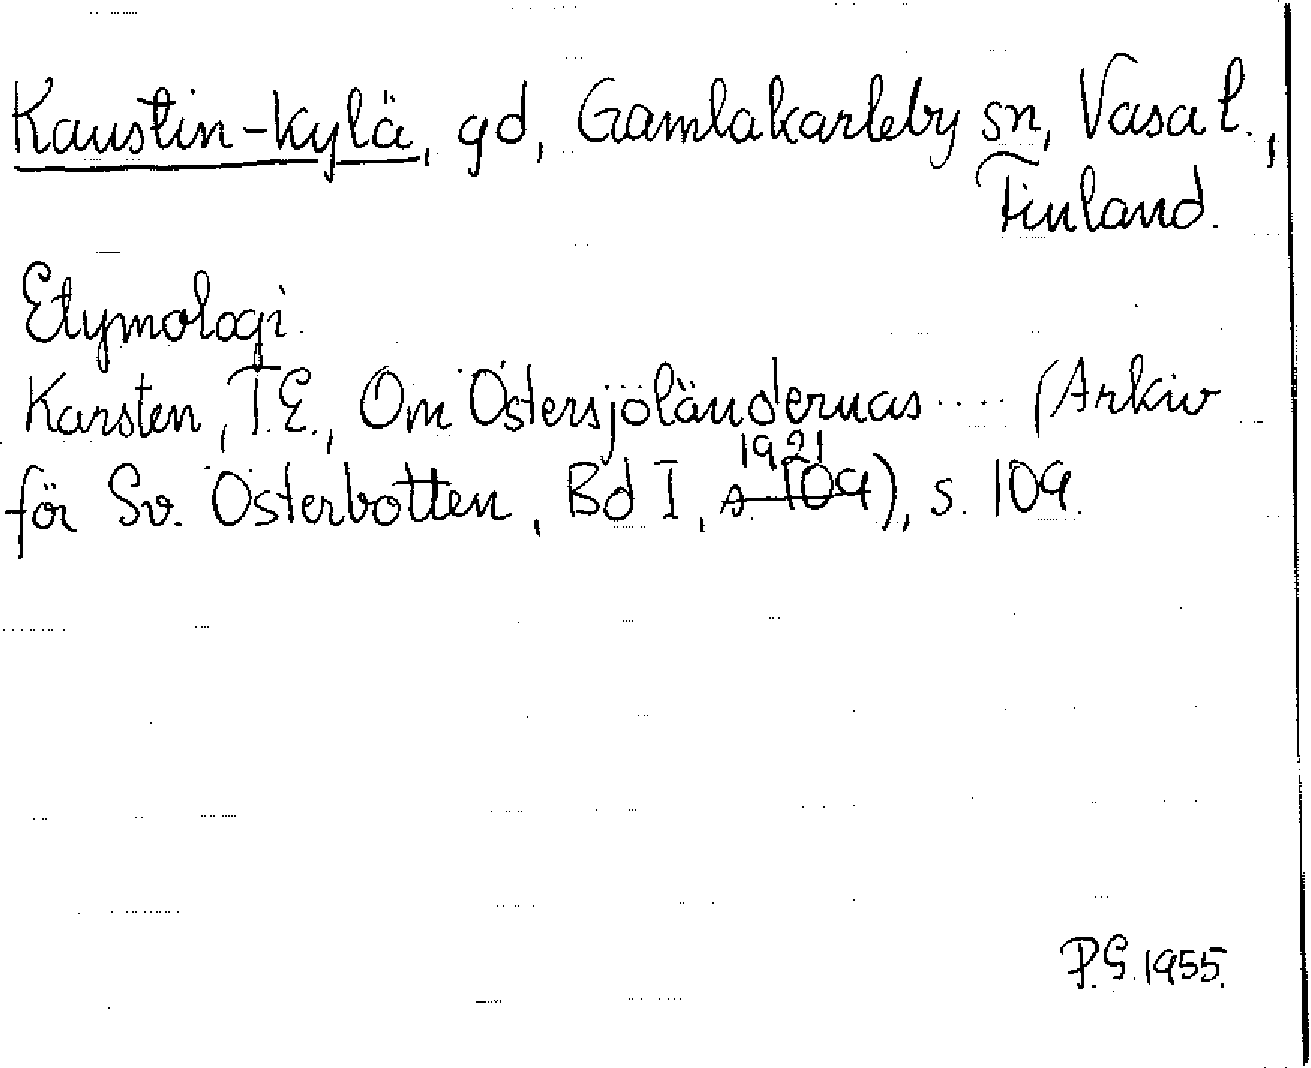 Kaustin-kylä, gd, Gamlakarleby sn, Vasa l.,
Finland.
Etymologi.
Karsten, T.E., Om Östersjöländernas .... (Arkiv
för Sv. Österbotten, Bd I, s. 109 1921), s. 109.
P.G. 1955.